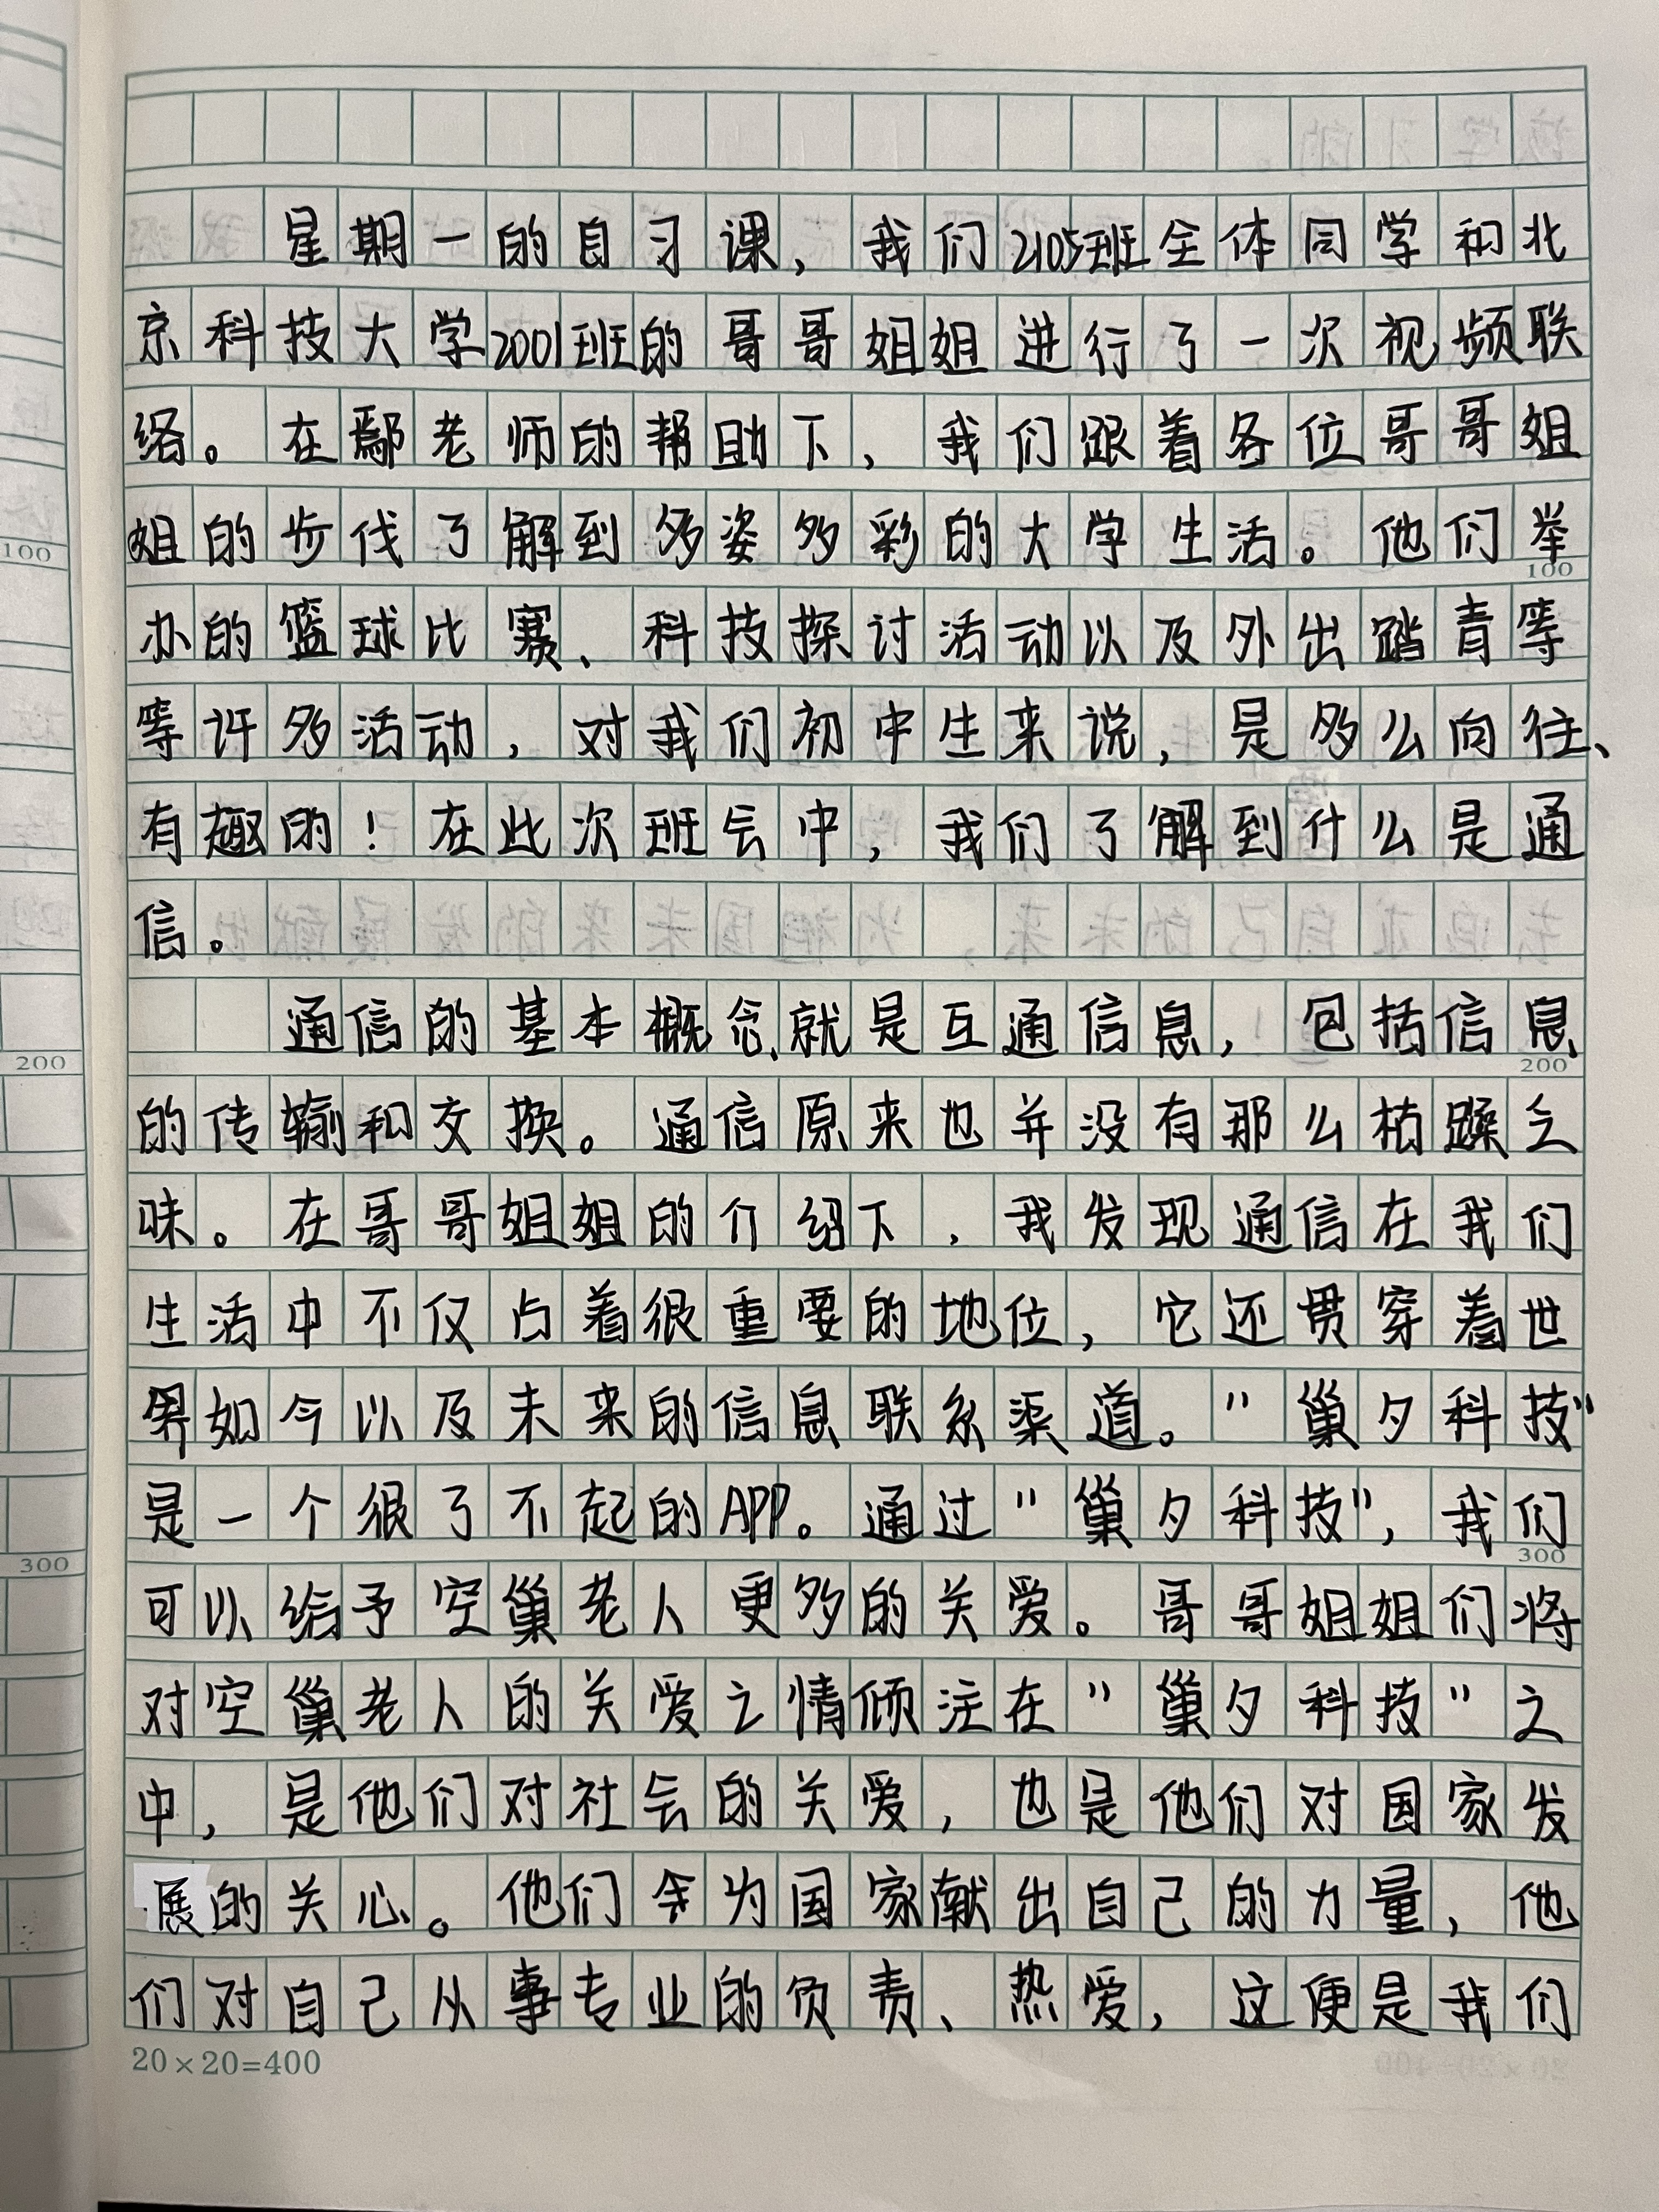 星期一的自习课，我们2105班全体同学和北
京科技大学2001班的哥哥姐姐进行了一次视频联
络。在鄢老师的帮助下，我们跟着各位哥哥姐
姐的步伐了解到多姿多彩的大学生活。他们举
100
100
办的篮球比赛、科技探讨活动以及外出踏青等
等许多活动，对我们初中生来说，是多么向往、
有趣的！在此次班会中，我们了解到什么是通
信。
通信的基本概念，就是互通信息，包括信息
200
200
的传输和交换。通信原来也并没有那么枯躁乏
味。在哥哥姐姐的介绍下，我发现通信在我们
生活中不仅占着很重要的地位，它还贯穿着世
界如今以及未来的信息联系渠道。"巢夕科技"
是一个很了不起的APP。通过"巢夕科技"，我们
300
300
可以给予空巢老人更多的关爱。哥哥姐姐们将
对空巢老人的关爱之情倾注在"巢夕科技"之
中，是他们对社会的关爱，也是他们对国家发
展的关心。他们会为国家献出自己的力量，他
们对自己从事专业的负责、热爱，这便是我们
20×20=400